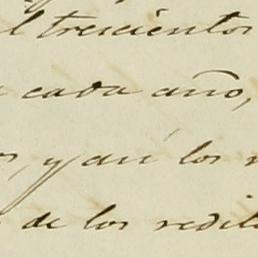 l trescientos
cada año,
, y aun los
de los redit